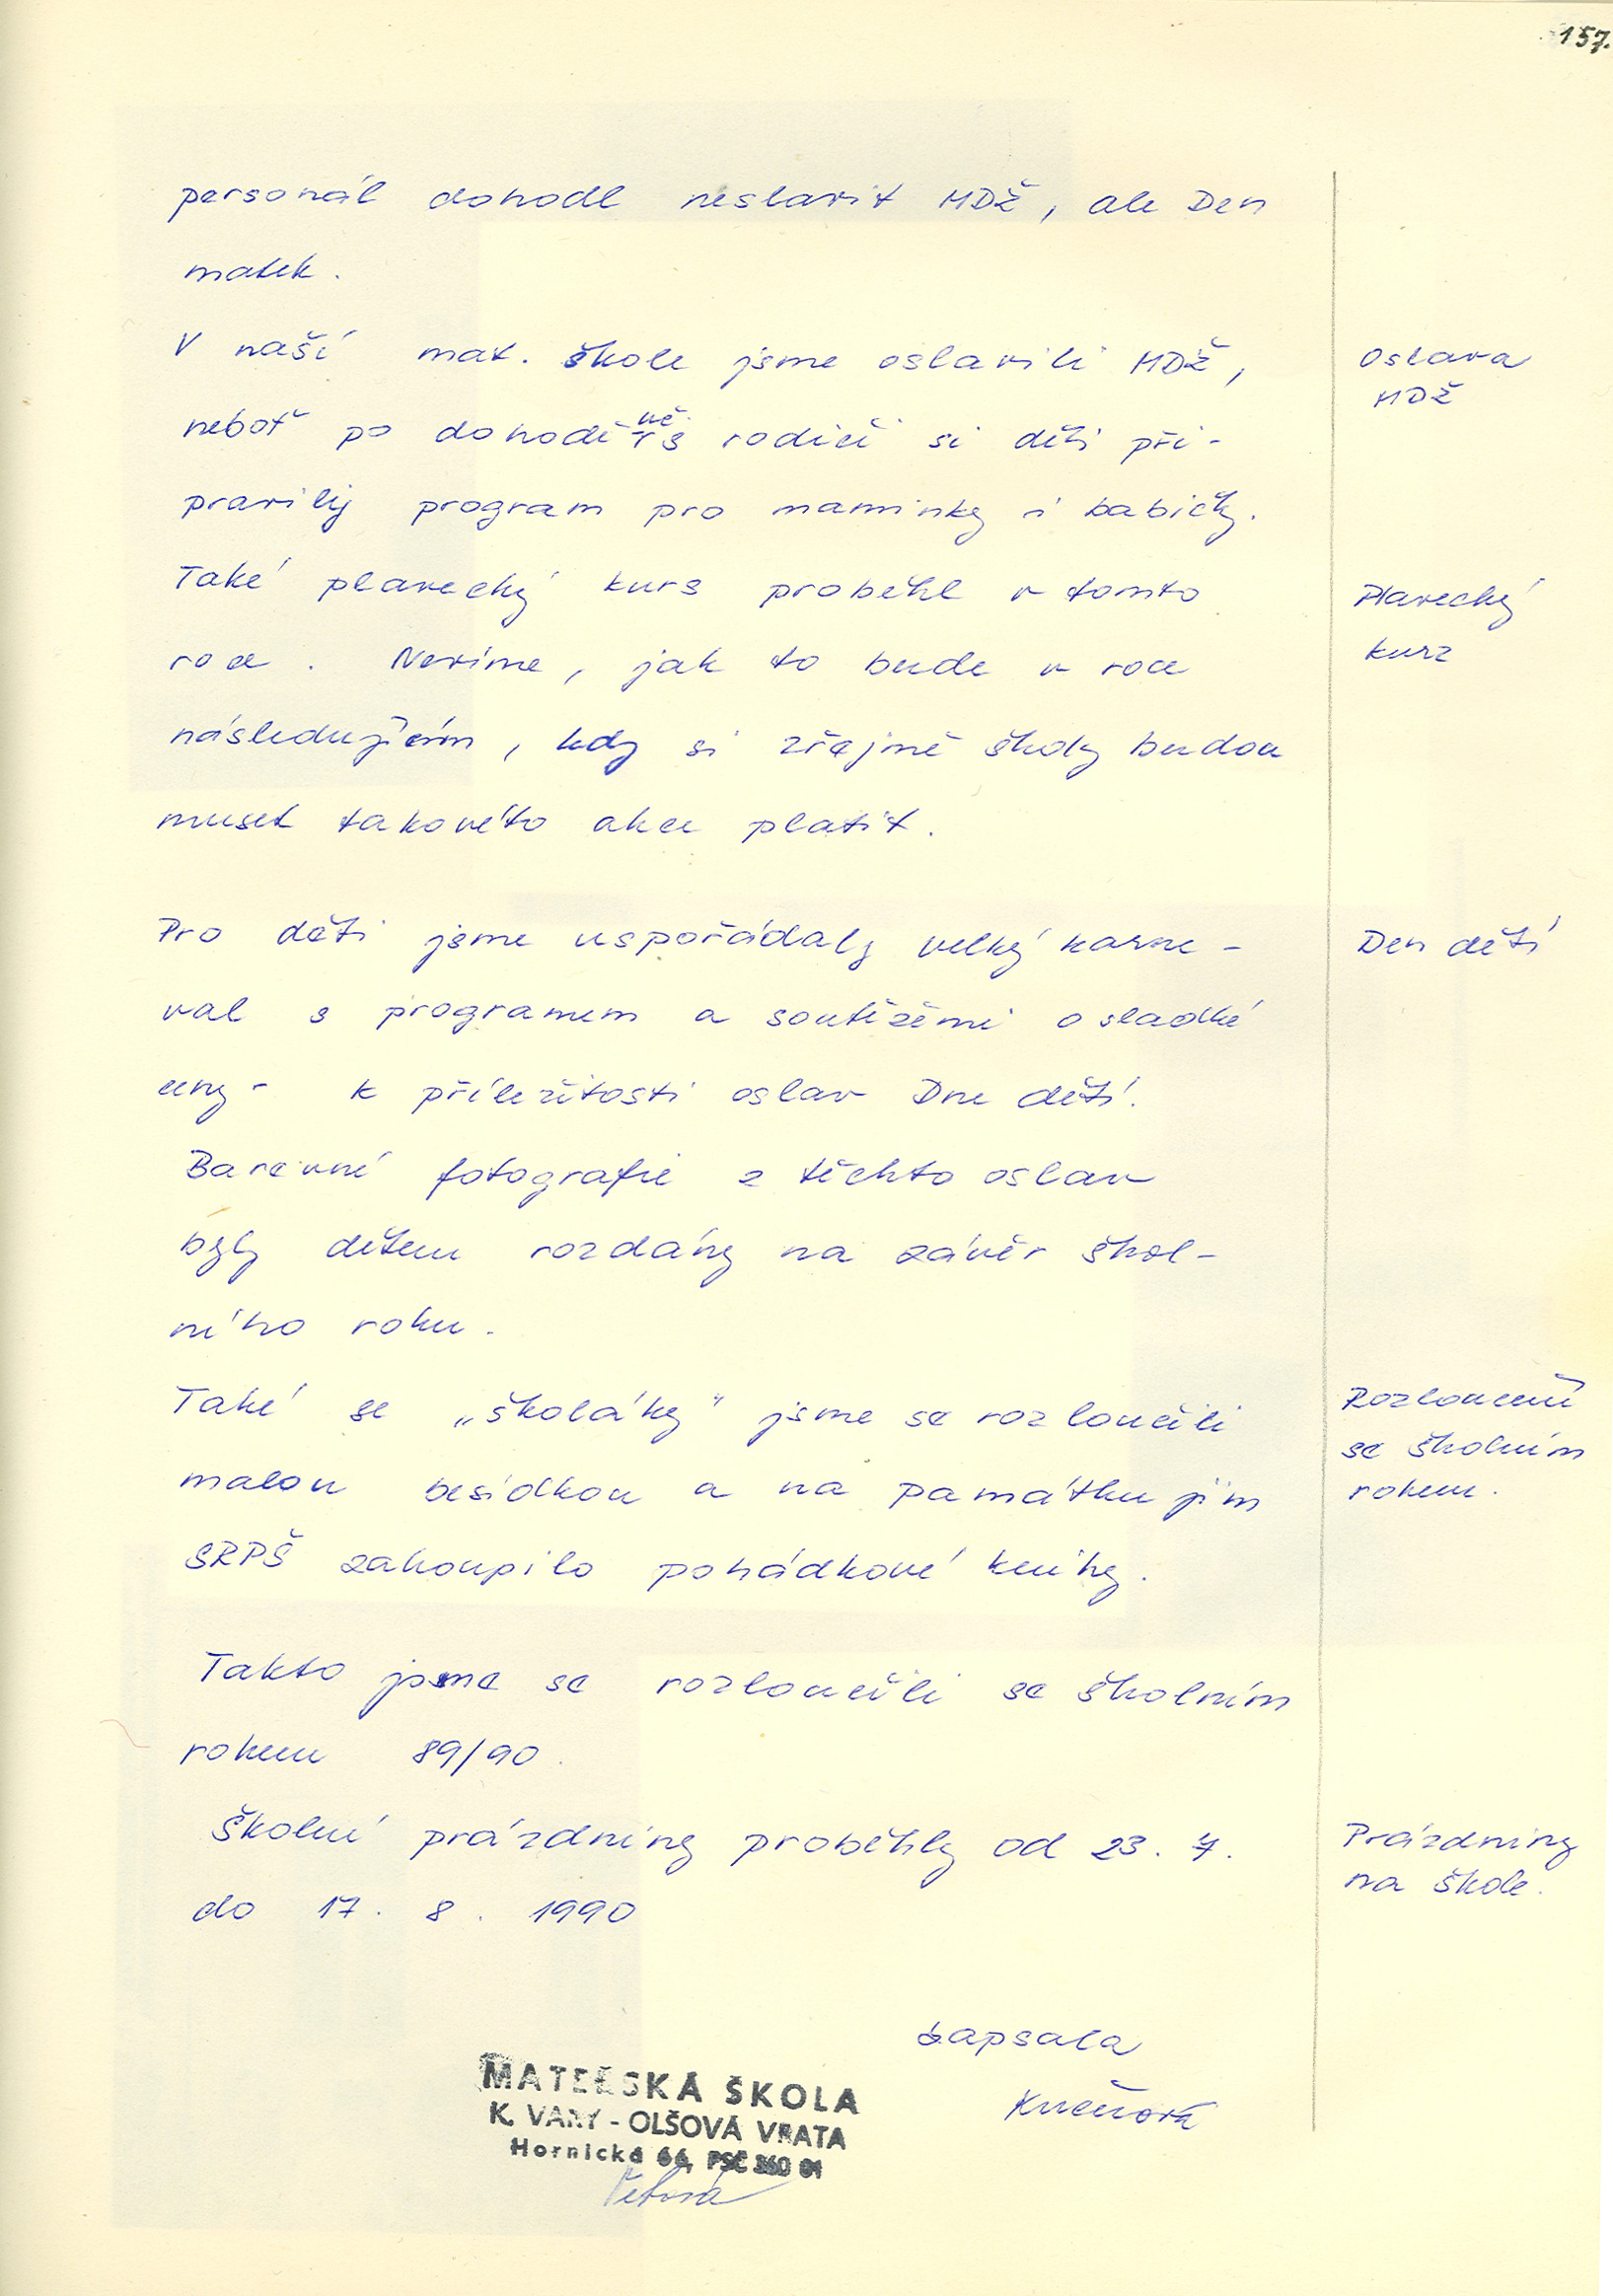 157.
personál dohodl neslavit MDŽ, ale Den
matek.
V naší mat. škole jsme oslavili MDŽ,
Oslava
MDŽ
neboť po dohodě s rodiči si děti při-
pravily program pro maminky i babičky.
Také plavecký kurs proběhl v tomto
Plavecký
kurz
roce. Nevíme, jak to bude v roce
následujícím, kdy si zřejmě školy budou
muset takovéto akce platit.
Pro děti jsme uspořádaly velký karne-
Den dětí
val s programem a soutěžemi o sladké
ceny - k příležitosti oslav Dne dětí.
Barevné fotografie z těchto oslav
byly dětem rozdány na závěr škol-
ního roku.
Také se „školáky" jsme se rozloučili
Rozloučení
se školním
rokem.
malou besídkou a na památku jim
SRPŠ zakoupilo pohádkové knihy.
Takto jsme se rozloučili se školním
rokem 89/90.
Školní prázdniny proběhly od 23. 7.
Prázdniny
na škole.
do 17. 8. 1990
Zapsala
MATEŘSKÁ ŠKOLA
K. VARY - OLŠOVÁ VRATA
Hornická 66, PSČ 360 01